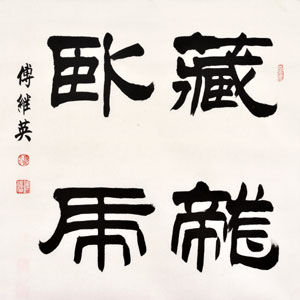 藏龍
臥虎
傅維英